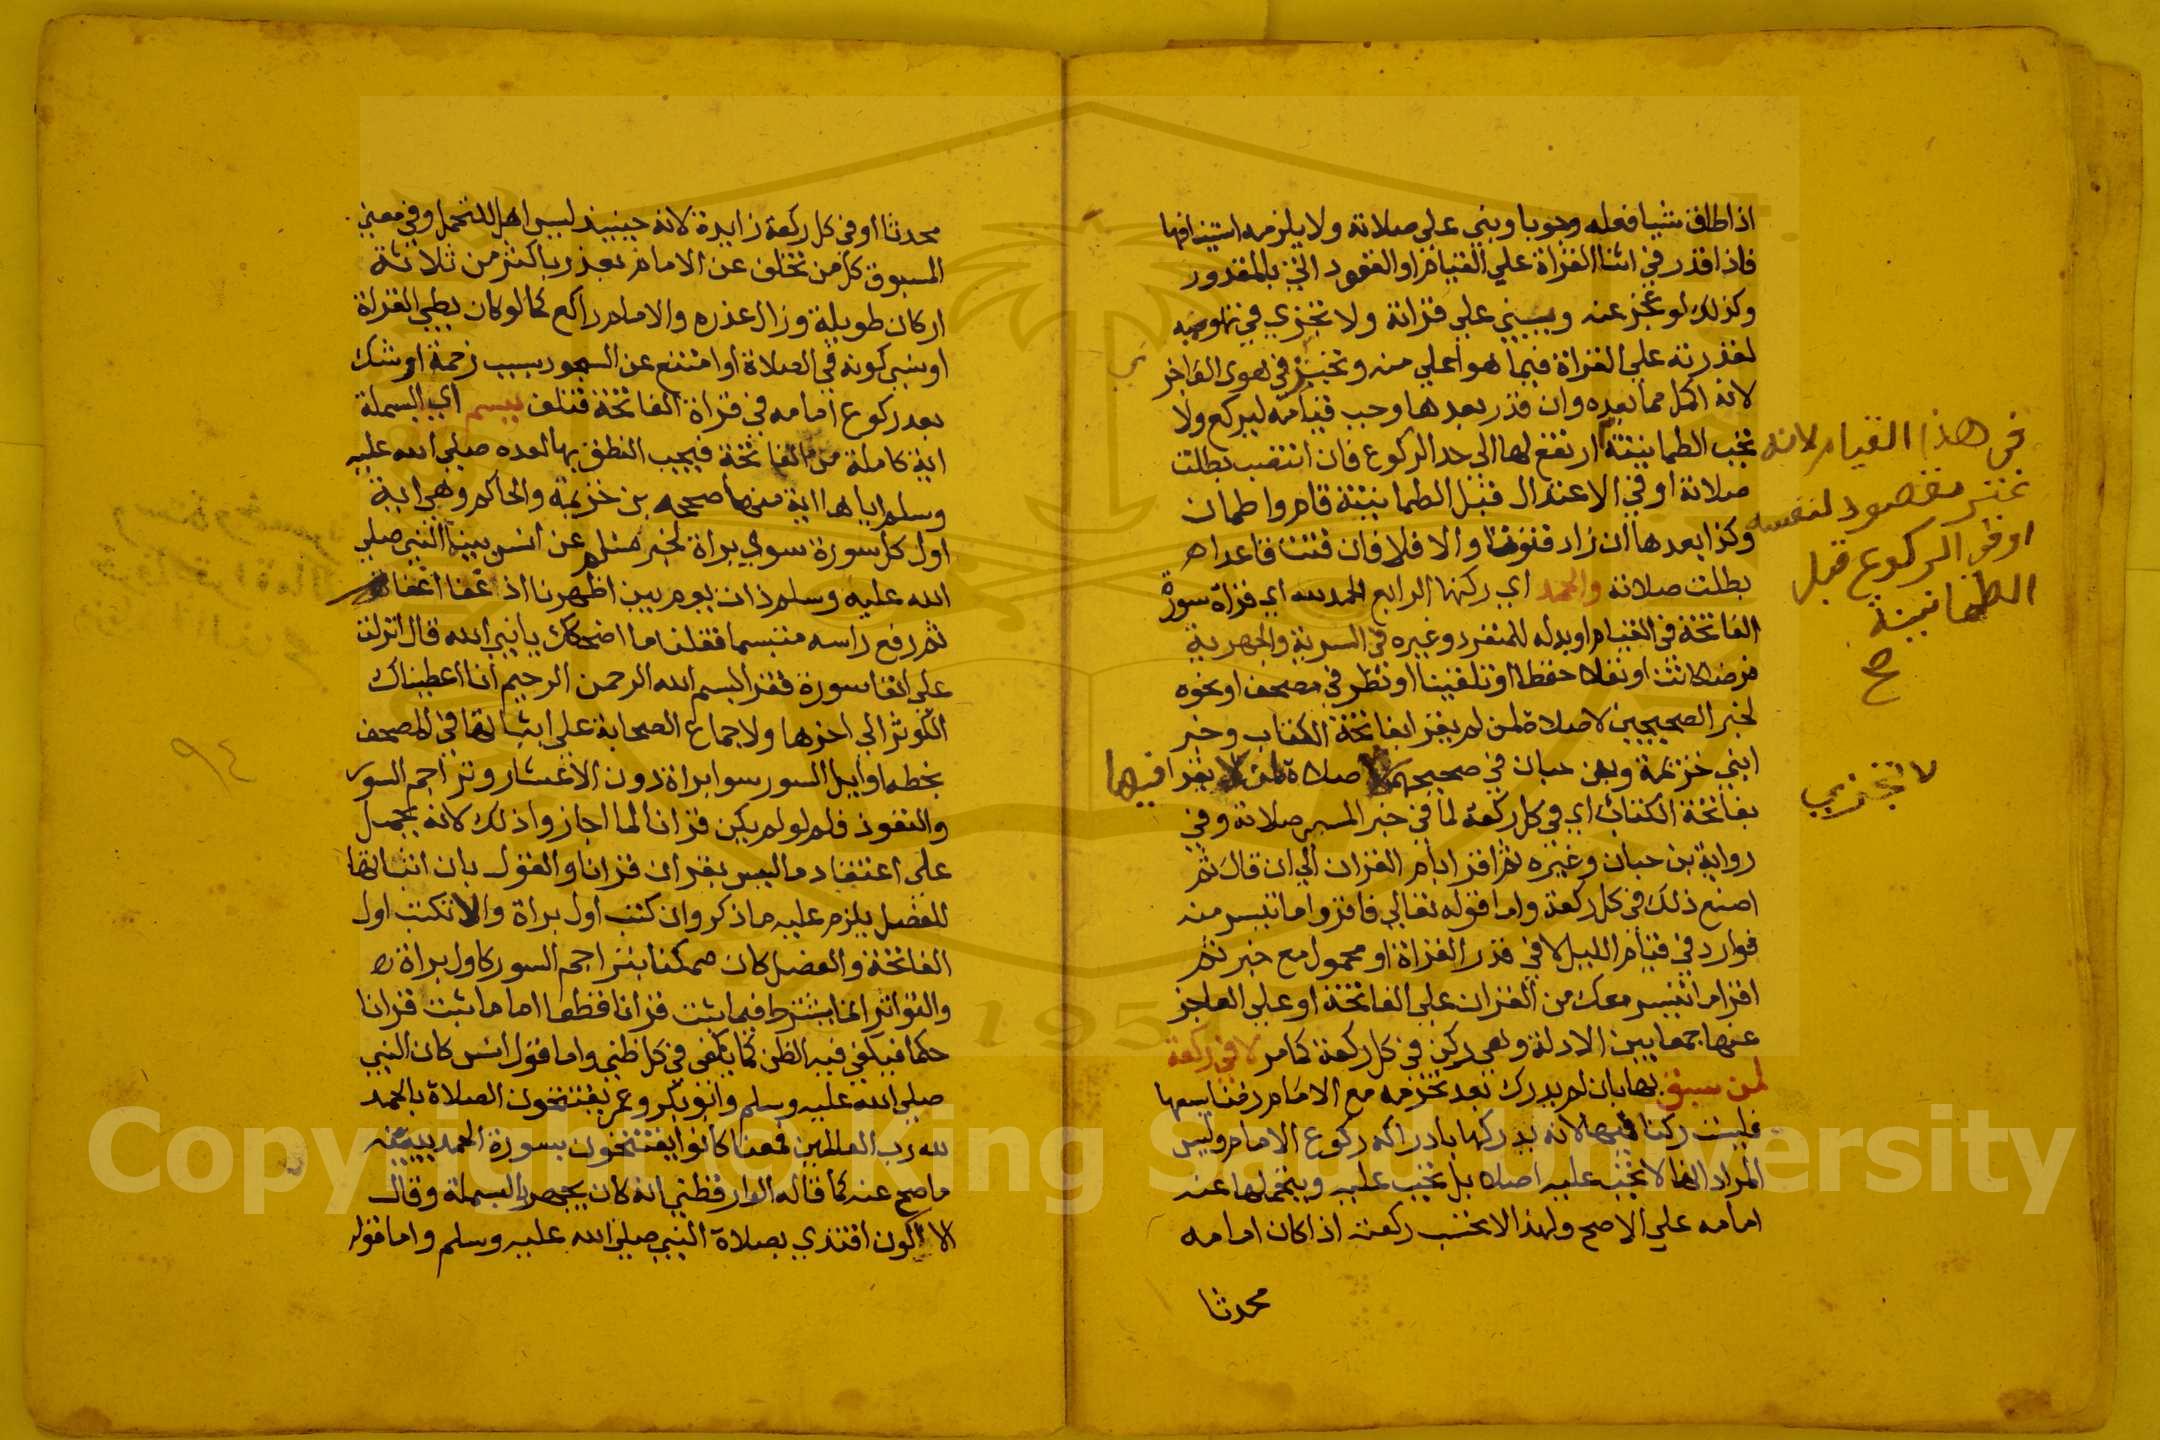 اذا طاق شيا فعله وجوبا وبني علي صلاته ولا يلزمه استينافها
فاذا قدر في اثنا القراة علي القيام او القعود اتي بالمقدور
وكذلك لو عجز عنه ويبني علي قراته ولا تجزي في نهوضه
لقدرته علي القراة فيما هو اعلي منه وتجب في هوي العاجز
لانه اكمل مما بعده وان قدر بعدها وجب قيامه ليركع ولا
تجب الطمانينة ارتفع لها الي حد الركوع فان انتصب بطلت
صلاته او في الاعتدال قبل الطمانينة قام واطمان
وكذا بعدها ان زاد قنوتا والا فلا فان قنت قاعدا
بطلت صلاته والحمد اي ركنها الرابع الحمد لله اي قراة سورة
الفاتحة في القيام او بدله للمنفرد وغيره في السرية والجهرية
فرضا كانت او نفلا حفظا او تلقينا او نظر في مصحف او نحوه
لخبر الصحيحين لا صلاة لمن لم يقرا بفاتحة الكتاب وخبر
ابني خزيمة وبن حبان في صحيحهما لا صلاة لا يقرا فيها
بفاتحة الكتاب اي في كل ركعة لما في خبر المسي صلاته وفي
رواية بن حبان وغيره ثم اقرا بام القران الي ان قال ثم
اصنع ذلك في كل ركعة واما قوله تعالي فاقروا ما تيسر منه
فوارد في قيام الليل لا في قدر القراة او محمول مع خبر ثم
اقرا ما تيسر معك من القران علي الفاتحة او علي العاجز
عنها جمعا بين الادلة وهي ركن في كل ركعة كما مر لا في ركعة
لمن سبق بها بان لم يدرك بعد تحرمه مع الامام زمنا يسعها
فليست ركنا فيها لانه يدركها بادراكه ركوع الامام وليس
المراد انها لا تجب عليه اصلا بل تجب عليه ويتحملها عنه
امامه علي الاصح ولهذا لا تحسب ركعته اذا كان امامه
محدثا
في هذا القيام لانه
غير مقصود لنفسه
او في الركوع قبل
الطمانينة
صح
لا تجزي
محدثا او في كل ركعة زايدة لانه حينيذ ليس اهلا للتحمل وفي معني
المسبوق كل من تخلف عن الامام بعذر باكثر من ثلاثة
اركان طويلة وزال عذره والامام راكع كما لو كان بطي القراة
او نسي كونه في الصلاة او امتنع عن السجود بسبب زحمة او شك
بعد ركوع امامه في قراة الفاتحة فتخلف ببسم اي البسملة
اية كاملة من الفاتحة فيجب النطق بها لعده صلي الله عليه
وسلم اياها اية منها صححه بن خزيمة والحاكم وهي اية
اول كل سورة سوي براة لخبر مسلم عن انس بينا النبي صلي
الله عليه وسلم ذات يوم بين اظهرنا اذ اغفا اغفاة
ثم رفع راسه متبسما فقلنا ما اضحكك يا نبي الله قال انزلت
علي انفا سورة فقرا بسم الله الرحمن الرحيم انا اعطيناك
الكوثر الي اخرها ولاجماع الصحابة علي اثباتها في المصحف
بخطه اوايل السور سوا براة دون الاعشار وتراجم السور
والتعوذ فلو لم يكن قرانا لما اجازوا ذلك لانه يحمل
علي اعتقاد ما ليس بقران قرانا والقول بان اثباتها
للفصل يلزم عليه ما ذكر وان كتبت اول براة ولا تكتب اول
الفاتحة والفصل كان ممكنا بتراجم السور كاول براة
والتواتر انما يشترط فيما يثبت قرانا قطعا اما ما يثبت قرانا
حكما فيكفي فيه الظن كما يكفي في كل ظني واما قول انس كان النبي
صلي الله عليه وسلم وابو بكر وعمر يفتتحون الصلاة بالحمد
لله رب العالمين فمعناه كانوا يفتتحون بسورة الحمد يبينه
ما صح عنه كما قاله الدارقطني انه كان يجهر بالبسملة وقال
لا الون اقتدي بصلاة النبي صلي الله عليه وسلم واما قوله
1957
Copyright © King Saud University